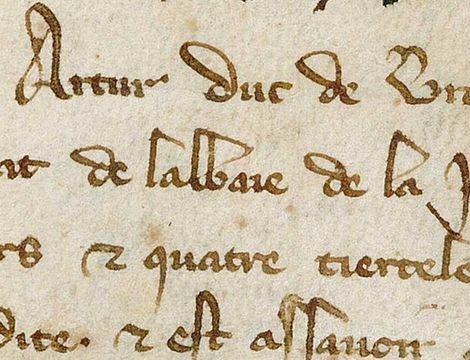 Artur duc de Br
at de labbaie de la
rs ⁊ quatre tiercele
dite. ⁊ est assauoir